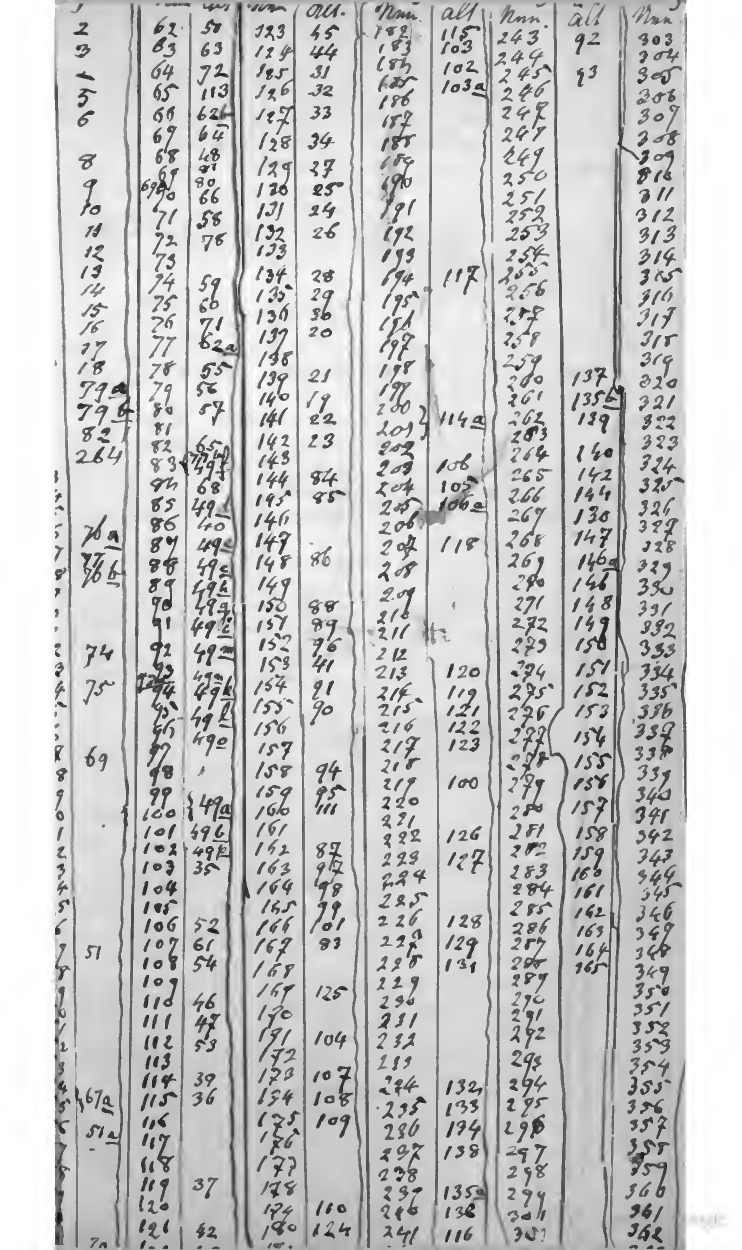 alt. alt alt
2 62 50 123 45 182 115 243 92 303
3 63 63 124 44 183 103 244 304
4 64 72 125 31 184 102 245 93 305
5 65 113 126 32 185 103a 246 306
6 66 62b 127 33 186 247 307
67 64 128 34 187 248 308
8 68 48 129 27 188 249 309
69 189 250 310
9 69a 80 130 25 190 251 311
70 66 131 24 191 252 312
10 71 58 132 26 192 253 313
11 72 78 133 193 254 314
12 73 134 28 194 117 255 315
13 74 59 135 29 195 256 316
14 75 60 136 30 196 257 317
15 76 71 137 20 197 258 318
16 77 62a 138 198 259 319
17 78 55 139 21 199 260 137 320
18 79 56 140 19 200 261 135b 321
79a 80 57 141 22 201 114a 262 139 322
79b 81 142 23 202 263 323
82 82 65 143 203 106 264 140 324
264 83 49f 144 84 204 105 265 142 325
84 68 145 85 205 106a 266 144 326
85 49 146 206 267 130 327
76a 86 40 147 207 118 268 147 328
77 87 49c 148 86 208 269 146a 329
76b 88 49e 149 209 270 146 330
89 49h 150 88 210 271 148 331
90 49g 151 89 211 272 149 332
91 49i 152 96 212 273 150 333
74 92 49m 153 41 213 120 274 151 334
93 49n 154 91 214 119 275 152 335
75 94 49k 155 90 215 121 276 153 336
95 49l 156 216 122 277 154 337
96 49o 157 217 123 278 155 338
69 97 158 94 218 279 156 339
98 159 95 219 100 280 157 340
99 160 111 220 281 158 341
100 49a 161 221 282 159 342
101 49b 162 87 222 126 283 160 343
102 49p 163 97 223 127 284 161 344
103 35 164 98 224 285 162 345
104 165 99 225 286 163 346
105 166 101 226 128 287 164 347
106 52 167 83 227 129 288 165 348
51 107 61 168 228 131 289 349
108 54 169 125 229 290 350
109 170 230 291 351
110 46 171 104 231 292 352
111 47 172 232 293 353
112 53 173 107 233 294 354
113 174 108 234 132 295 355
67a 114 39 175 109 235 133 296 356
115 36 176 236 134 297 357
51a 116 177 237 138 298 358
117 178 238 299 359
118 179 110 239 135a 360
119 37 180 124 240 136 301 361
120 241 116 362
121 42